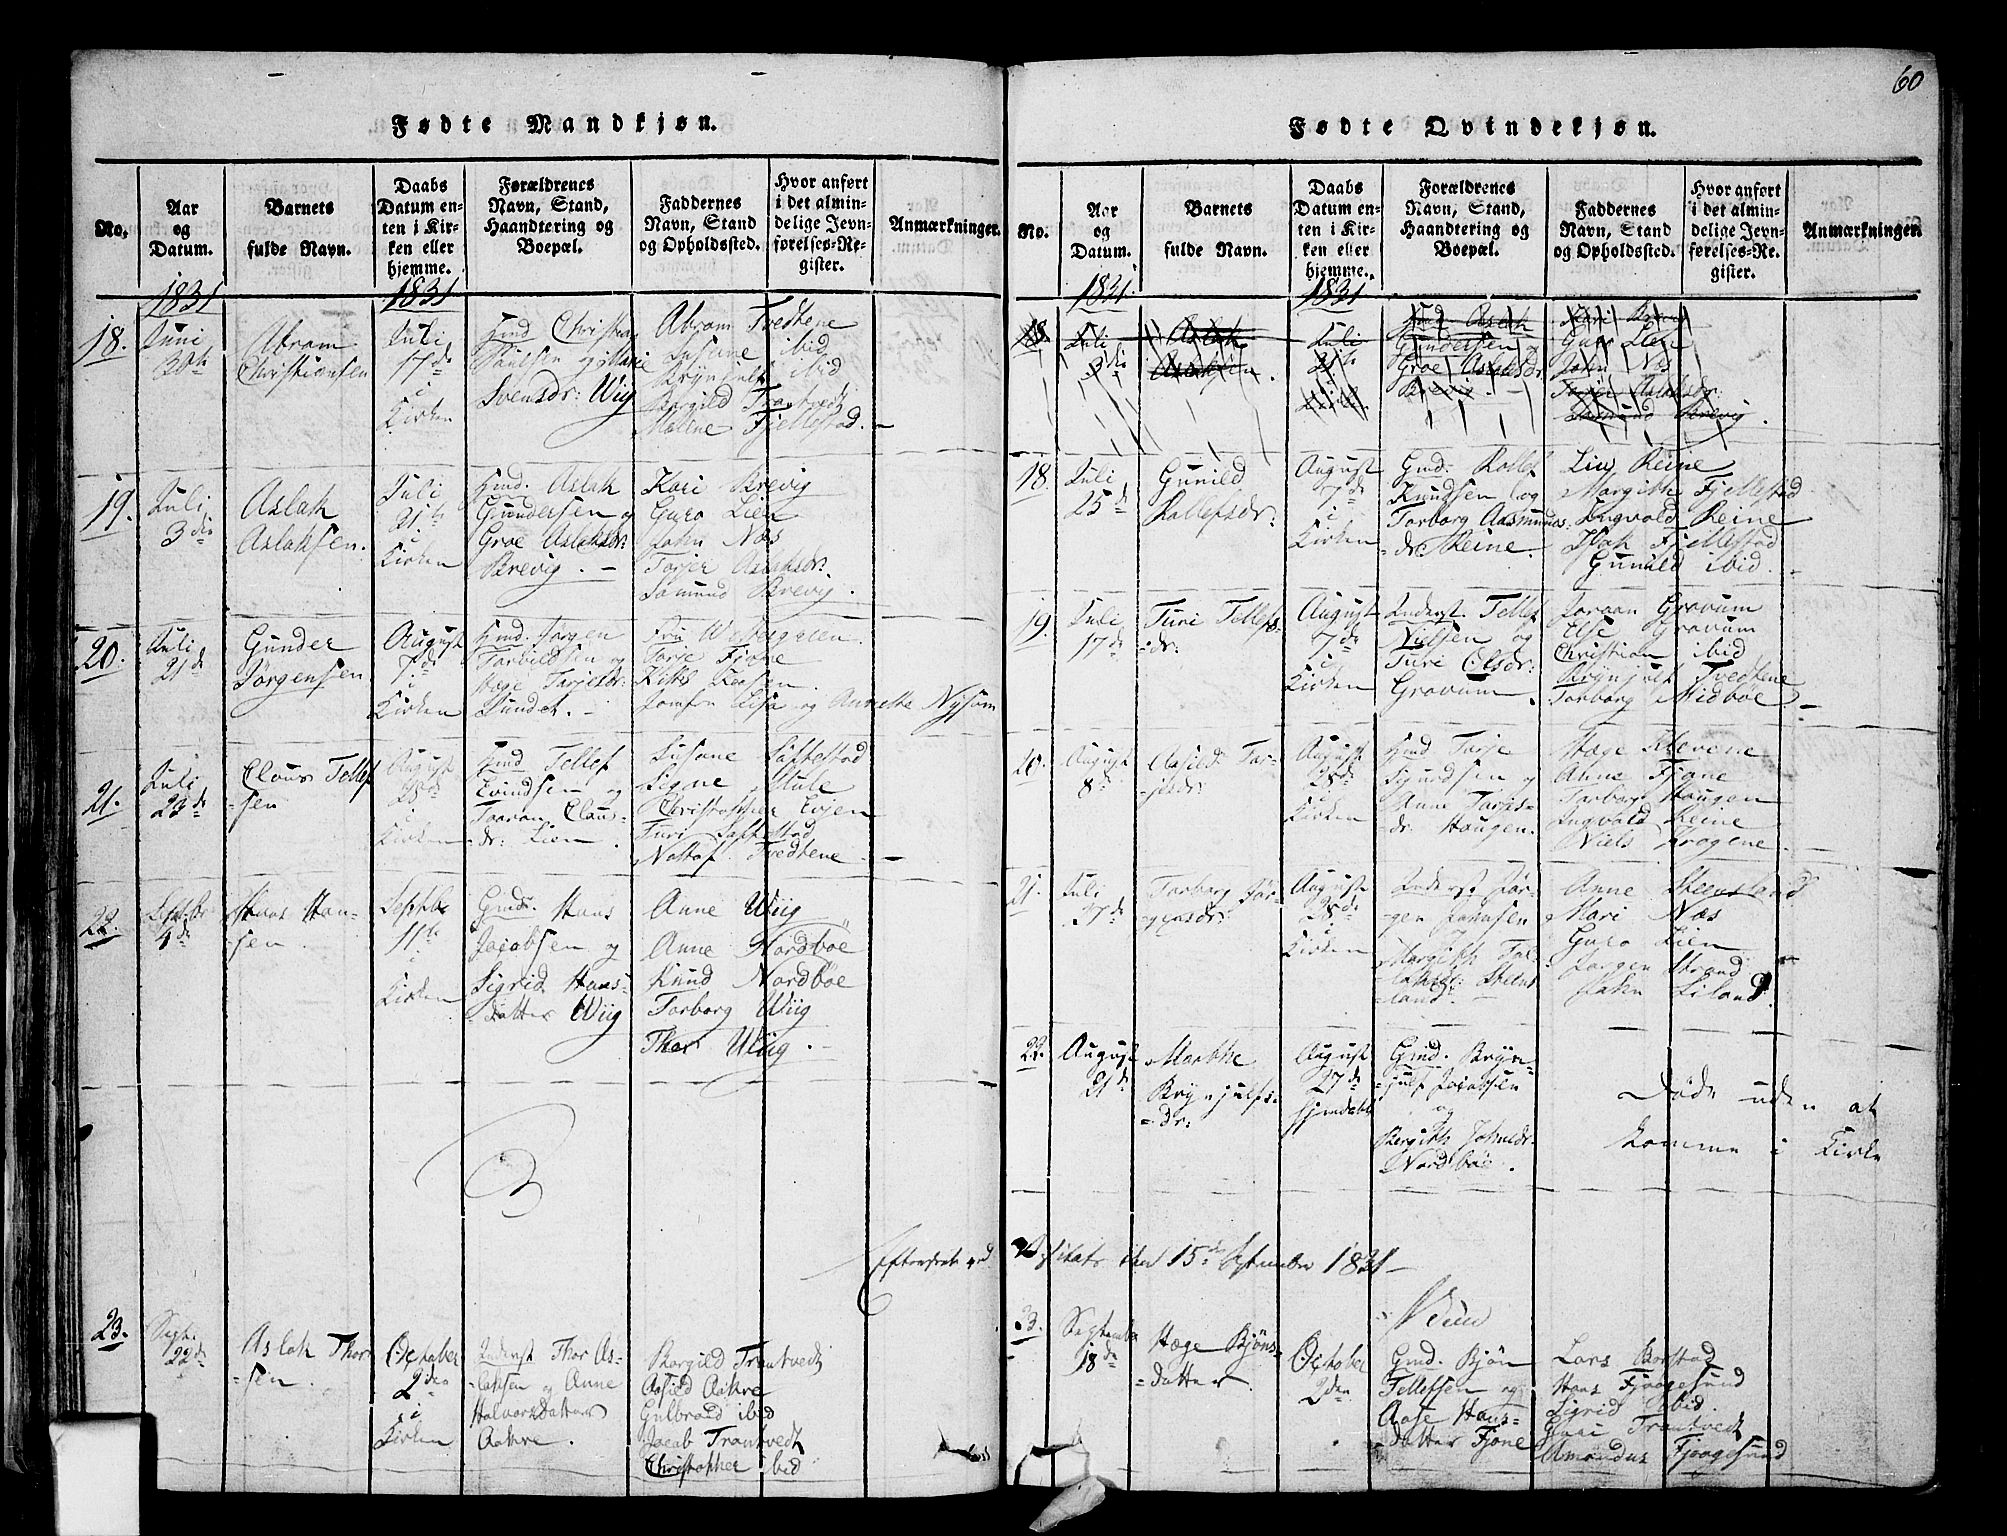 60
Fødte Mandkjøn.
No.
Aar
og
Datum.
Barnets
fulde Navn.
Daabs
Datum en-
ten i Kir-
ken eller
hjemme.
Forældrenes
Navn, Stand,
Haandtering og
Boepæl.
Faddernes
Navn, Stand
og Opholdssted.
Hvor anført
i det almin-
delige Jevn-
førelses-Re-
gister.
Anmærkninger.
1831
1831
18.
Juni
30th
Abram
Christiansen
Juli
17de
i
Kirken
Gmd Christian
Poulsen og Marie
Svensdr: Wiig
Abram Tvedtene
Susane ibid
Brynjulf ibid
Borgild Trontvedt
Malene Fjellestad.
19.
Juli
3die
Aslak
Aslaksen.
Juli
31te
i
Kirken
Gmd. Aslak
Gundersen og
Groe Aslaksdr:
Brevig. -
Kari Brevig
Guro Lien
John Næs
Torjer Aslaksdr:
Samund Brevig.
20.
Juli
21de
Gunder
Jörgensen
August
7de
i
Kirken
Gmd. Jörgen
Torkildsen og
Hæge Tarjesdr:
Sundet. -
Frue
Tarje Fjone
Jomfru Elisa og Annette Nysom
21.
Juli
23de
Claus Tellef
=sen
August
28de
i
Kirken
Gmd Tellef
Evindsen og
Taaran Claus-
=dr: Lien.
Susane Saftestad
Signe Hule
Christopher Evjen
Turi Saftestad
Nottof Tvedtene
22.
Septbr
4de
Hans Han-
sen.
Septbr
11te
i
Kirken
Gmd: Hans
Jacobsen og
Sigrid Hans-
datter Wiig
Anne Wiig
Anne Nordböe
Knud Nordböe
Torborg Wiig
Thor Wiig. -
23.
Sept.
22de
Aslak Thor
=sen.
October
2den
i
Kirken
Inderst Thor As-
=laksen og Anne
Halvorsdatter
Aakre.
Borgild Trontvedt
Aasild Aakre
Gulbrand ibid
Jacob Trontvedt
Christopher ibid
Fødte Qvindekjøn.
No.
Aar
og
Datum.
Barnets
fulde Navn.
Daabs
Datum en-
ten i Kir-
ken eller
hjemme.
Forældrenes
Navn, Stand,
Haandtering og
Boepæl.
Faddernes
Navn, Stand
og Opholdssted.
Hvor anført
i det almin-
delige Jevn-
førelses-Re-
gister.
Anmærkninger.
1831
1831
18
Juli
3die
Aslak
Aslaksen.
Juli
31te
i
Kirken
Gmd. Aslak
Gundersen og
Groe Aslaksdr
Brevig. -
Kari Brevig
Guro Lien
John Næs
Torjer Aslaksdr:
Samund Brevig.
18.
Juli
25de
Gunild
Rollefsdr:
August
7de
i
Kirken
Gmd: Rollef
Knudsen og
Torborg Aasmunds-
=dr: Reine.
Liv Reine
Margith Fjellestad
Ingvald Reine
Isak Fjellestad
Gunild ibid.
19.
Juli
17de
Turi Tellefs-
=dr:
August
7de
i
Kirken
Inderst Tellef
Nielsen og
Turi Olsdr:
Gravum
Joraan Gravum
Else Gravum
Christian ibid
Brynjulf Tvedtene
Torborg Midboe
20.
August
8de
Aasild Tar-
=jesdr:
August
28de
i
Kirken
Gmd Tarje
Sigurdsen og
Anne Tarjes-
=dr: Haugen.
Hæge Klevene
Anne Fjone
Torborg Haugen
Ingvald Reine
Niels Krogene
21.
Juli
27de
Torborg Jör-
=gensdr:
August
28de
i
Kirken
Inderst Jör-
=gen Johnsen
Margith
Steens
=land.
Anne Steensland
Mari Næs
Guro Lien
Jorgen Strand
John Liland.
22.
August
21de
Marthe
Brynjulfs-
=dr:
August
27de
hjemdøbt
Gmd. Bryn-
=julf Jacobsen
og
Bergith Johnsdr.
Nordböe.
Döde uden at
komme i Kirke
Efterseet ved
Visitats den 15de September 1831
23.
September
18de
Hæge Björns-
=datter.
October
2den
Gmd. Björn
Tellefsen og
Aase Hans-
datter Fjone
Lars Borstad
Hans Fjoogesund
Sigrid ibid.
Trontvedt
Amondus Fjoogesund